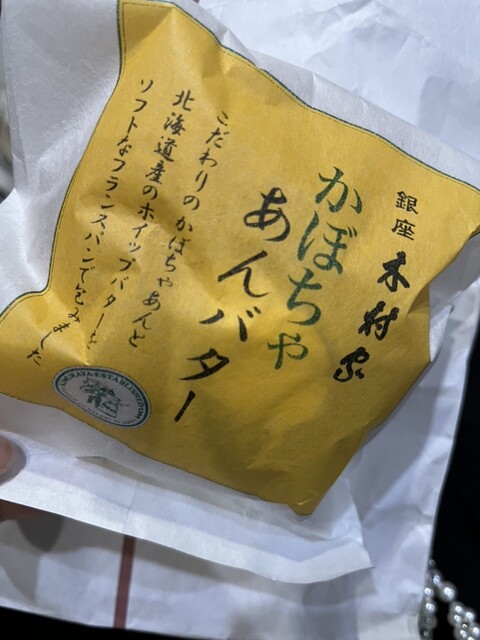 銀座
木村家
かぼちゃ
あんバター
こだわりのかぼちゃあんと
北海道産のホイップバターを
ソフトなフランスパンで包みました